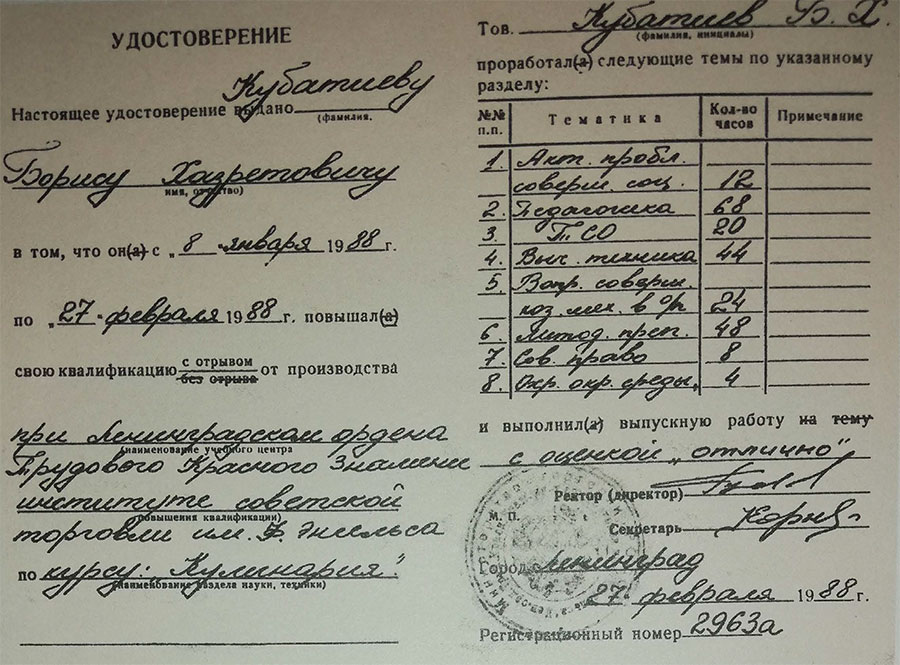 УДОСТОВЕРЕНИЕ
Настоящее удостоверение выдано Кубатиеву
(фамилия,
Борису Хазретовичу
имя, отчество)
в том, что он(а) с „8" января 1988 г.
по „27" февраля 1988 г. повышал(а)
свою квалификацию с отрывом
без отрыва от производства
при Ленинградском ордена
(наименование учебного центра
Трудового Красного Знамени
институте советской
повышения квалификации)
торговли им. Ф. Энгельса
по курсу: „Кулинария".
(наименование раздела науки, техники)
Тов. Кубатиев Б. Х.
(фамилия, инициалы)
проработал(а) следующие темы по указанному
разделу:
№№ п.п. Тематика Кол-во часов Примечание
1. Акт. пробл.
соверш. соц. 12
2. Педагогика 68
3. ТСО 20
4. Выч. техника 44
5. Вопр. соверш.
хоз. мех. в о/п 24
6. Метод. преп. 48
7. Сов. право 8
8. Охр. окр. среды 4
и выполнил(а) выпускную работу на тему
с оценкой „отлично"
Ректор (директор)
М. П.
Секретарь
Город Ленинград
27 февраля 1988 г.
Регистрационный номер 2963а